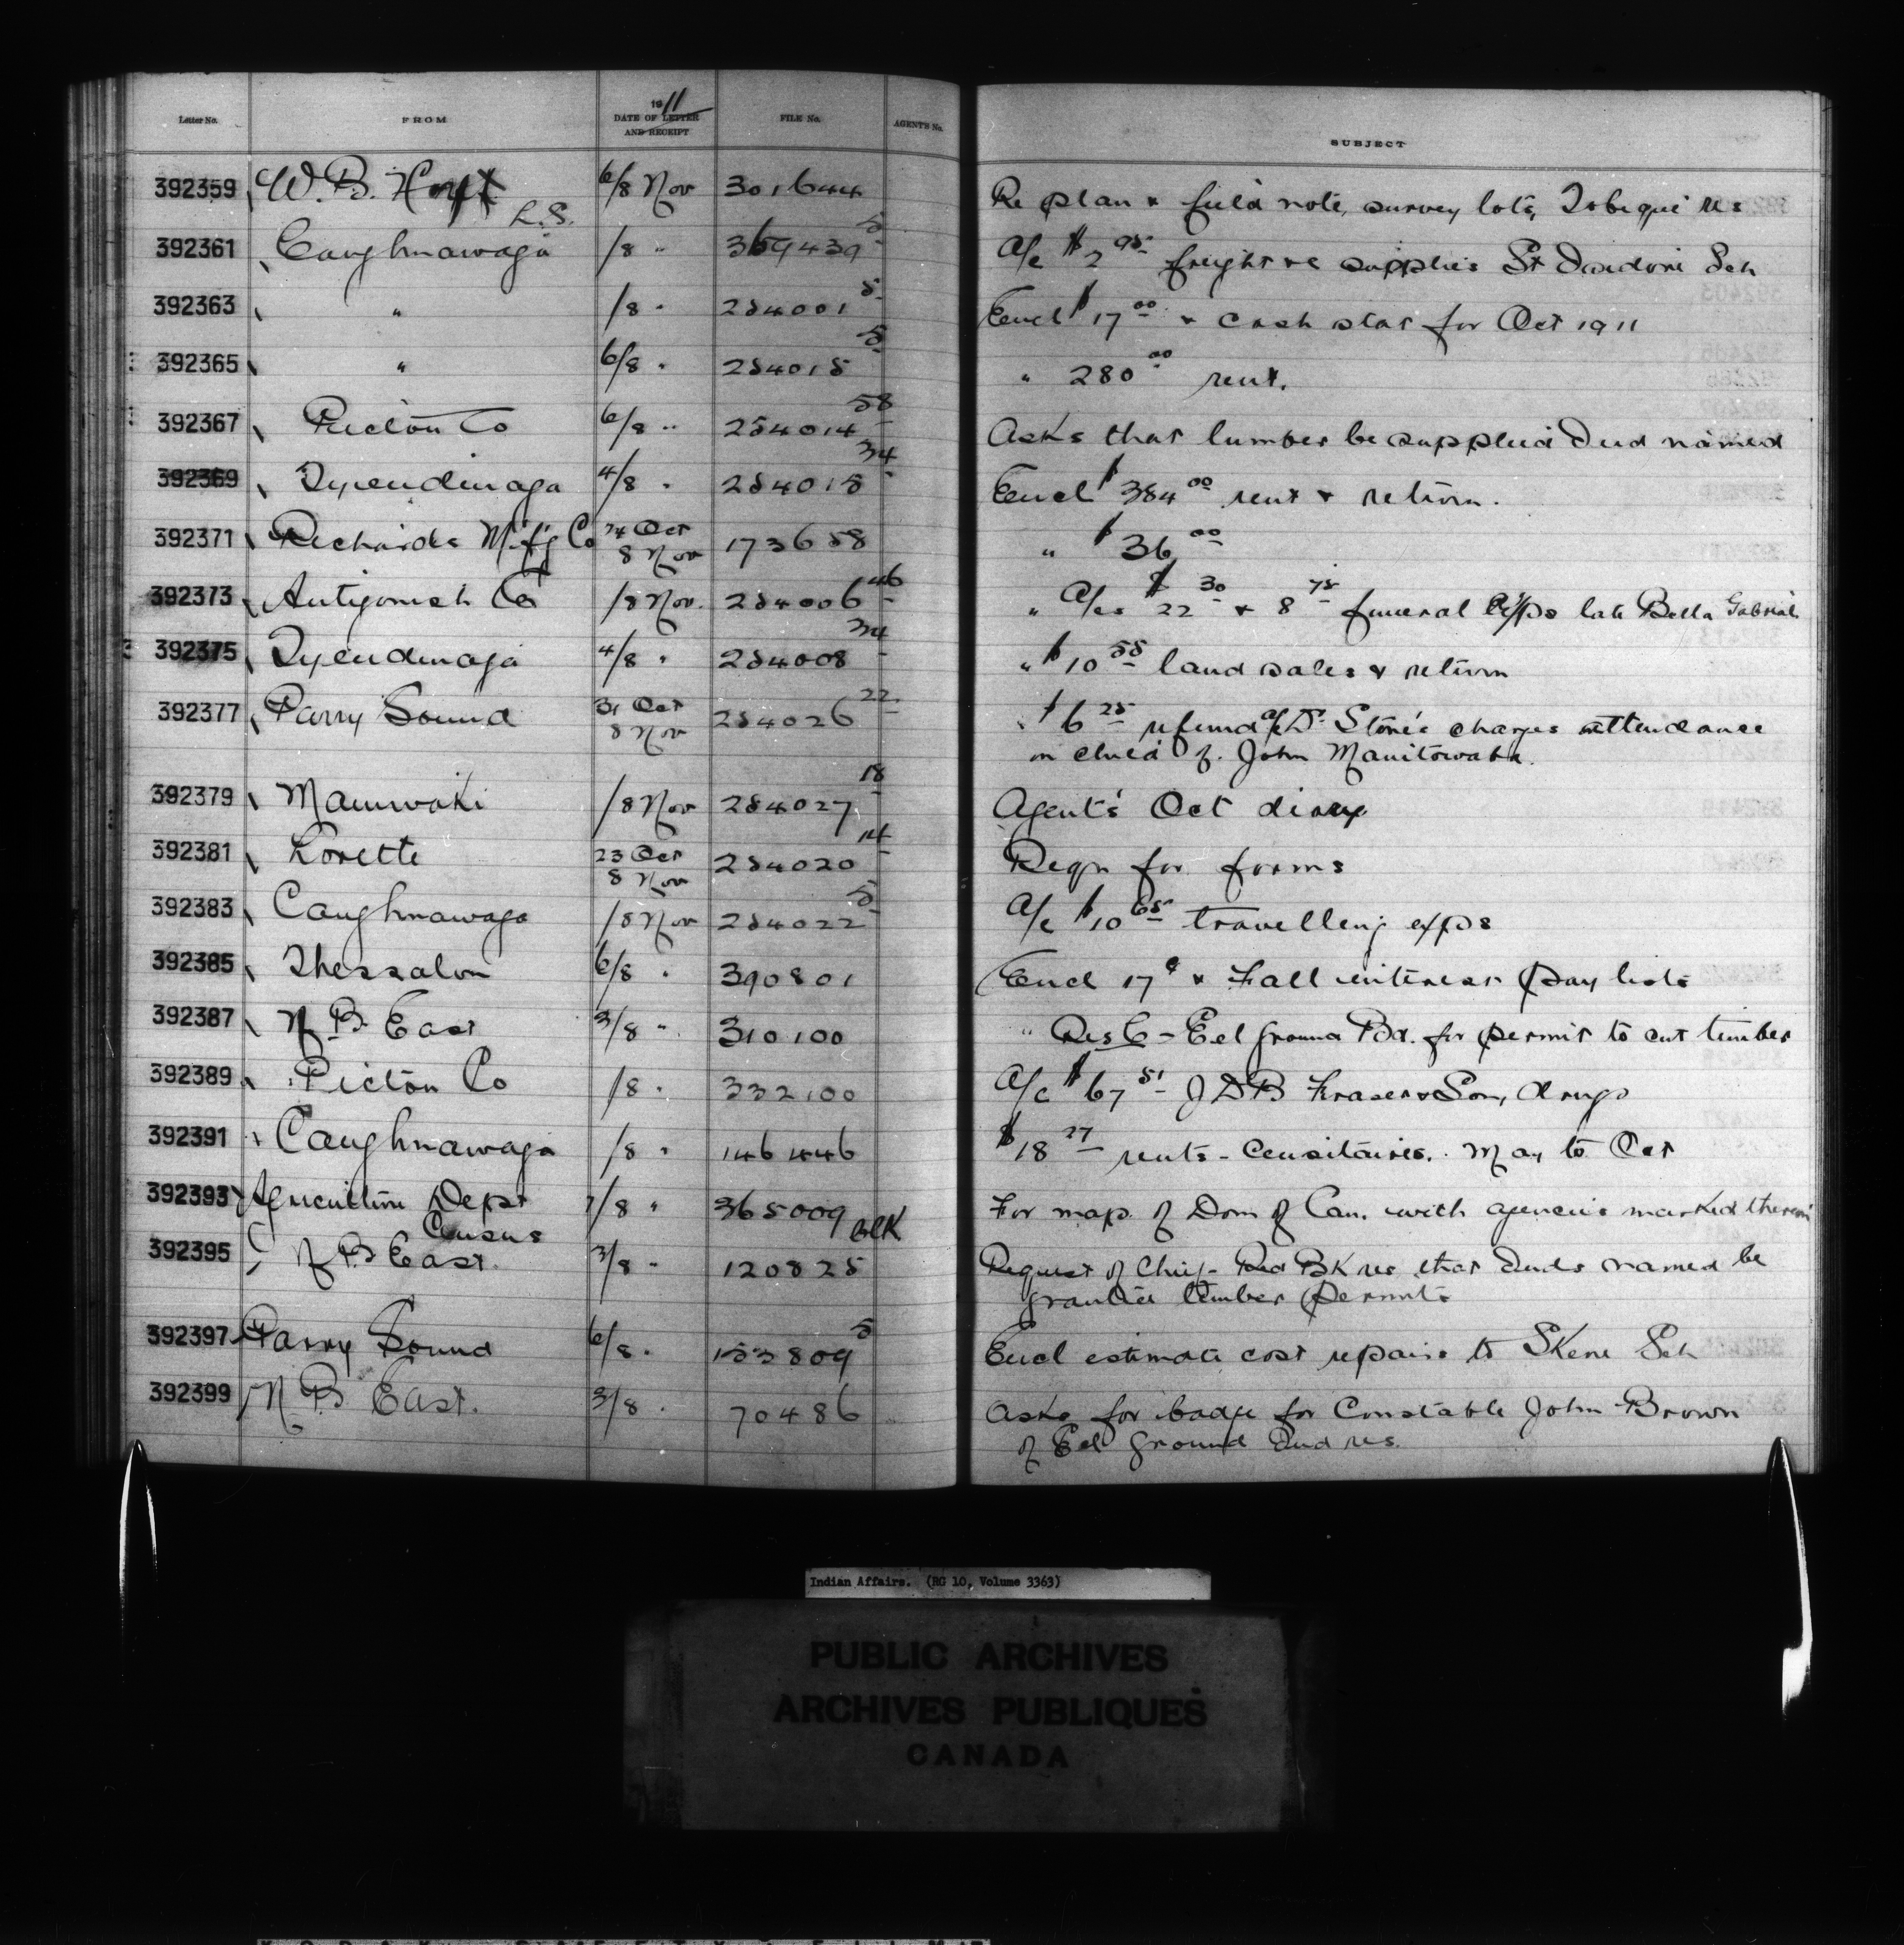 Letter No. FROM 1911 DATE OF LETTER AND RECEIPT FILE No. AGENT'S No. SUBJECT
392359 W. B. Hoyt L.S. 6/8 Nov 301644 Re plan & field note, survey lots, Tobique res
392361 Caughnawaga /8 " 369439 5 A/c $2 95 freight re supplies St Isidore Sch
392363 " /8 " 254001 5 Encl $17 00 & cash stat for Oct 1911
392365 " 6/8 " 254015 5 " 280 00 rent.
392367 Pictou Co 6/8 " 254014 58 Asks that lumber be supplied Ind named
392369 Tyendinaga 4/8 " 254015 34 Encl $384 00 rent & return.
392371 Richards Mfg Co 24 Oct 8 Nov 173658 " $36 00
392373 Antigonish Co /8 Nov. 254006 46 " A/cs $22 30 & 8 75 funeral exps late Bella Gabriel
392375 Tyendinaga 4/8 " 254008 34 " $10 55 land sales & return
392377 Parry Sound 31 Oct 8 Nov 254026 22 " $6 25 refund a/c Dr Stone's charges attendance
on child of John Manitowaba.
392379 Maniwaki /8 Nov 254027 18 Agent's Oct diary
392381 Lorette 23 Oct 8 Nov 254020 14 Reqn for forms
392383 Caughnawaga /8 Nov 254022 5 A/c $10 65 travelling exps
392385 Thessalon 6/8 " 390801 Encl 17 c & Fall interest pay lists
392387 N B East 3/8 " 310100 " Res C - Eel Ground Bd. for permit to cut timber
392389 Pictou Co /8 " 332100 A/c $67 51 J D B Fraser & Son, drugs
392391 Caughnawaga /8 " 146446 $18 27 rents - Censitaires. May to Oct
392393 Agriculture Dept Census 7/8 " 365009 For map of Dom of Can. with agencies marked therein
392395 N B East. 3/8 " 120825 Request of Chief - Red Bk res that Inds named be
granted timber permits
392397 Parry Sound 6/8 " 153809 5 Encl estimate cost repairs to Skene Sch
392399 N B East. 3/8 " 70486 Asks for badge for Constable John Brown
of Eel Ground Ind res.
Indian Affairs. (RG 10, Volume 3363)
PUBLIC ARCHIVES
ARCHIVES PUBLIQUES
CANADA